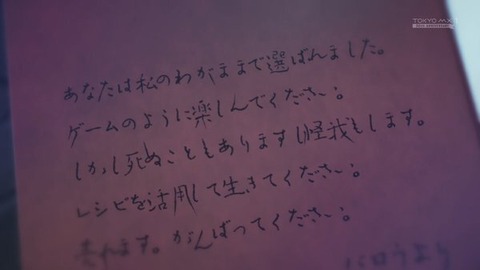 TOKYO MX
あなたは私のわがままで選ばれました。
ゲームのように楽しんでください。
しかし死ぬこともありますし怪我もします。
レシピを活用して生きてください。
売れます。がんばってください。
より